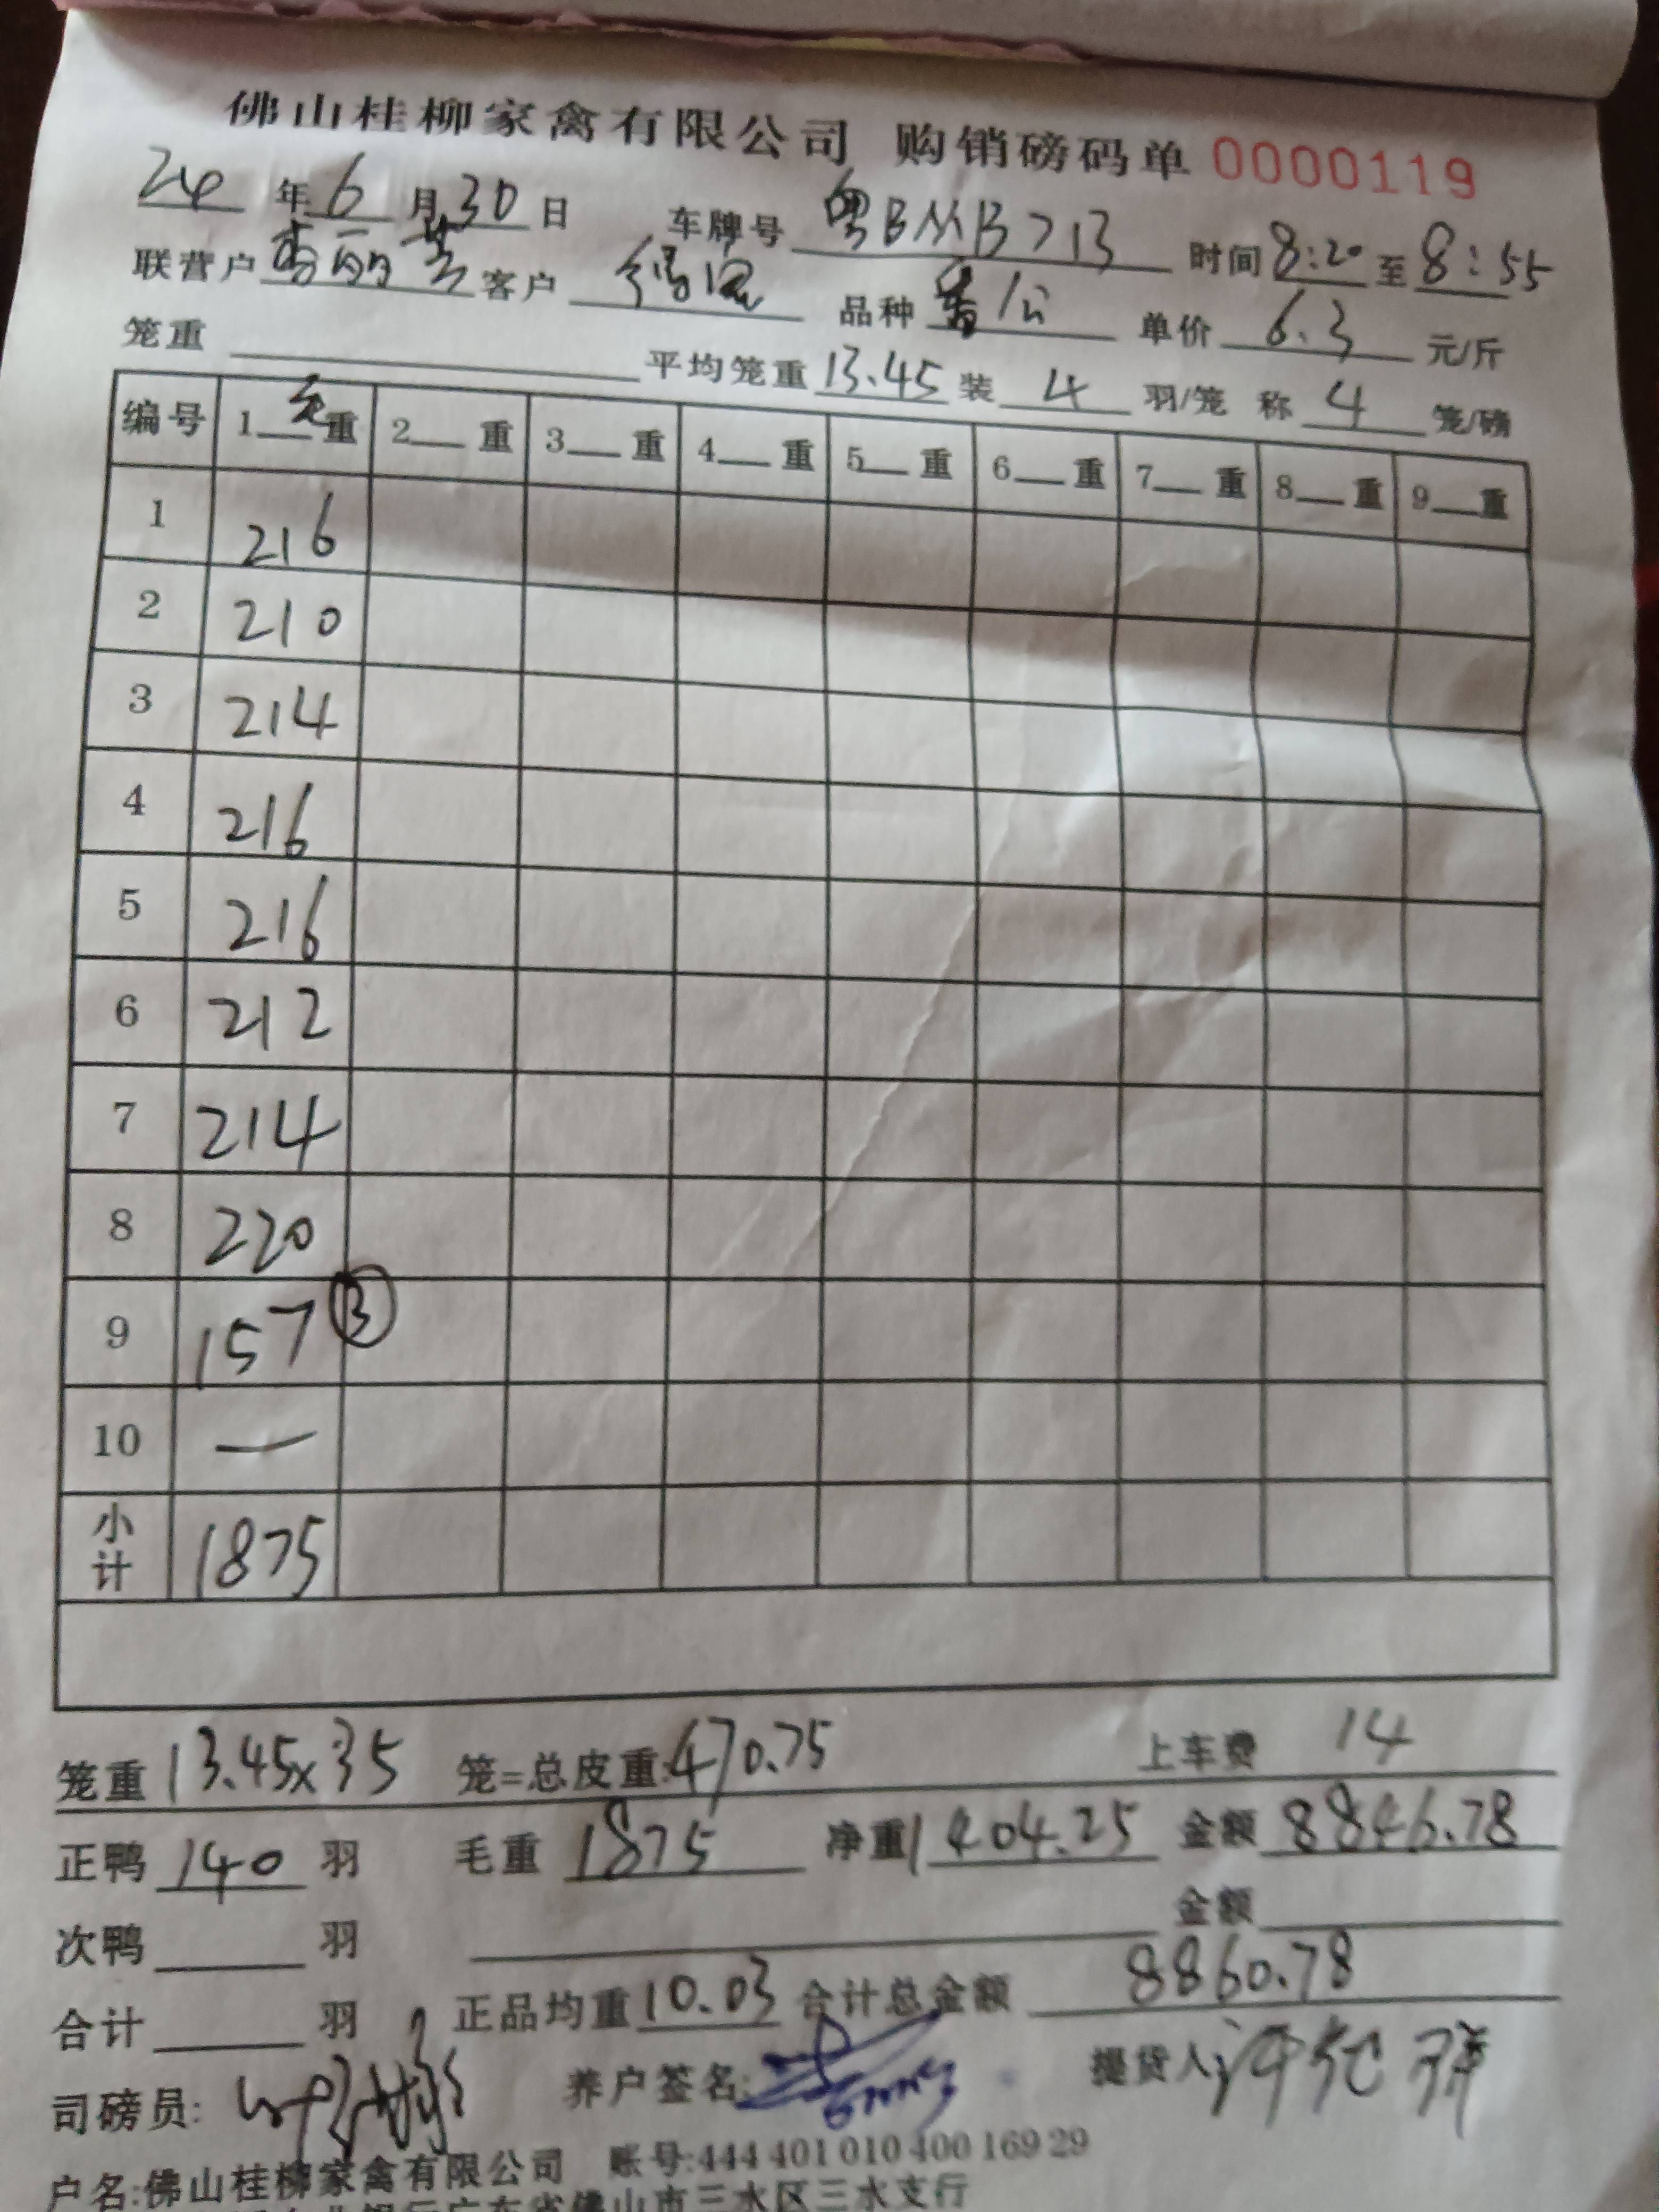 佛山桂柳家禽有限公司 购销磅码单 0000119
24 年 6 月 30 日 车牌号 粤BMB713 时间 8:20 至 8:55
联营户 客户 品种 番/公 单价 6.3 元/斤
笼重 平均笼重 13.45 装 4 羽/笼 称 4 笼/磅
编号 1 毛 重 2 重 3 重 4 重 5 重 6 重 7 重 8 重 9 重
1 216
2 210
3 214
4 216
5 216
6 212
7 214
8 220
9 157 ③
10 —
小计 1875
笼重 13.45×35 笼=总皮重: 470.75 上车费 14
正鸭 140 羽 毛重 1875 净重 1404.25 金额 8846.78
次鸭 羽 金额
合计 羽 正品均重 10.03 合计总金额 8860.78
司磅员: 养户签名: 提货人:
户名:佛山桂柳家禽有限公司 账号:444 401 010 400 169 29
广东省佛山市三水区三水支行